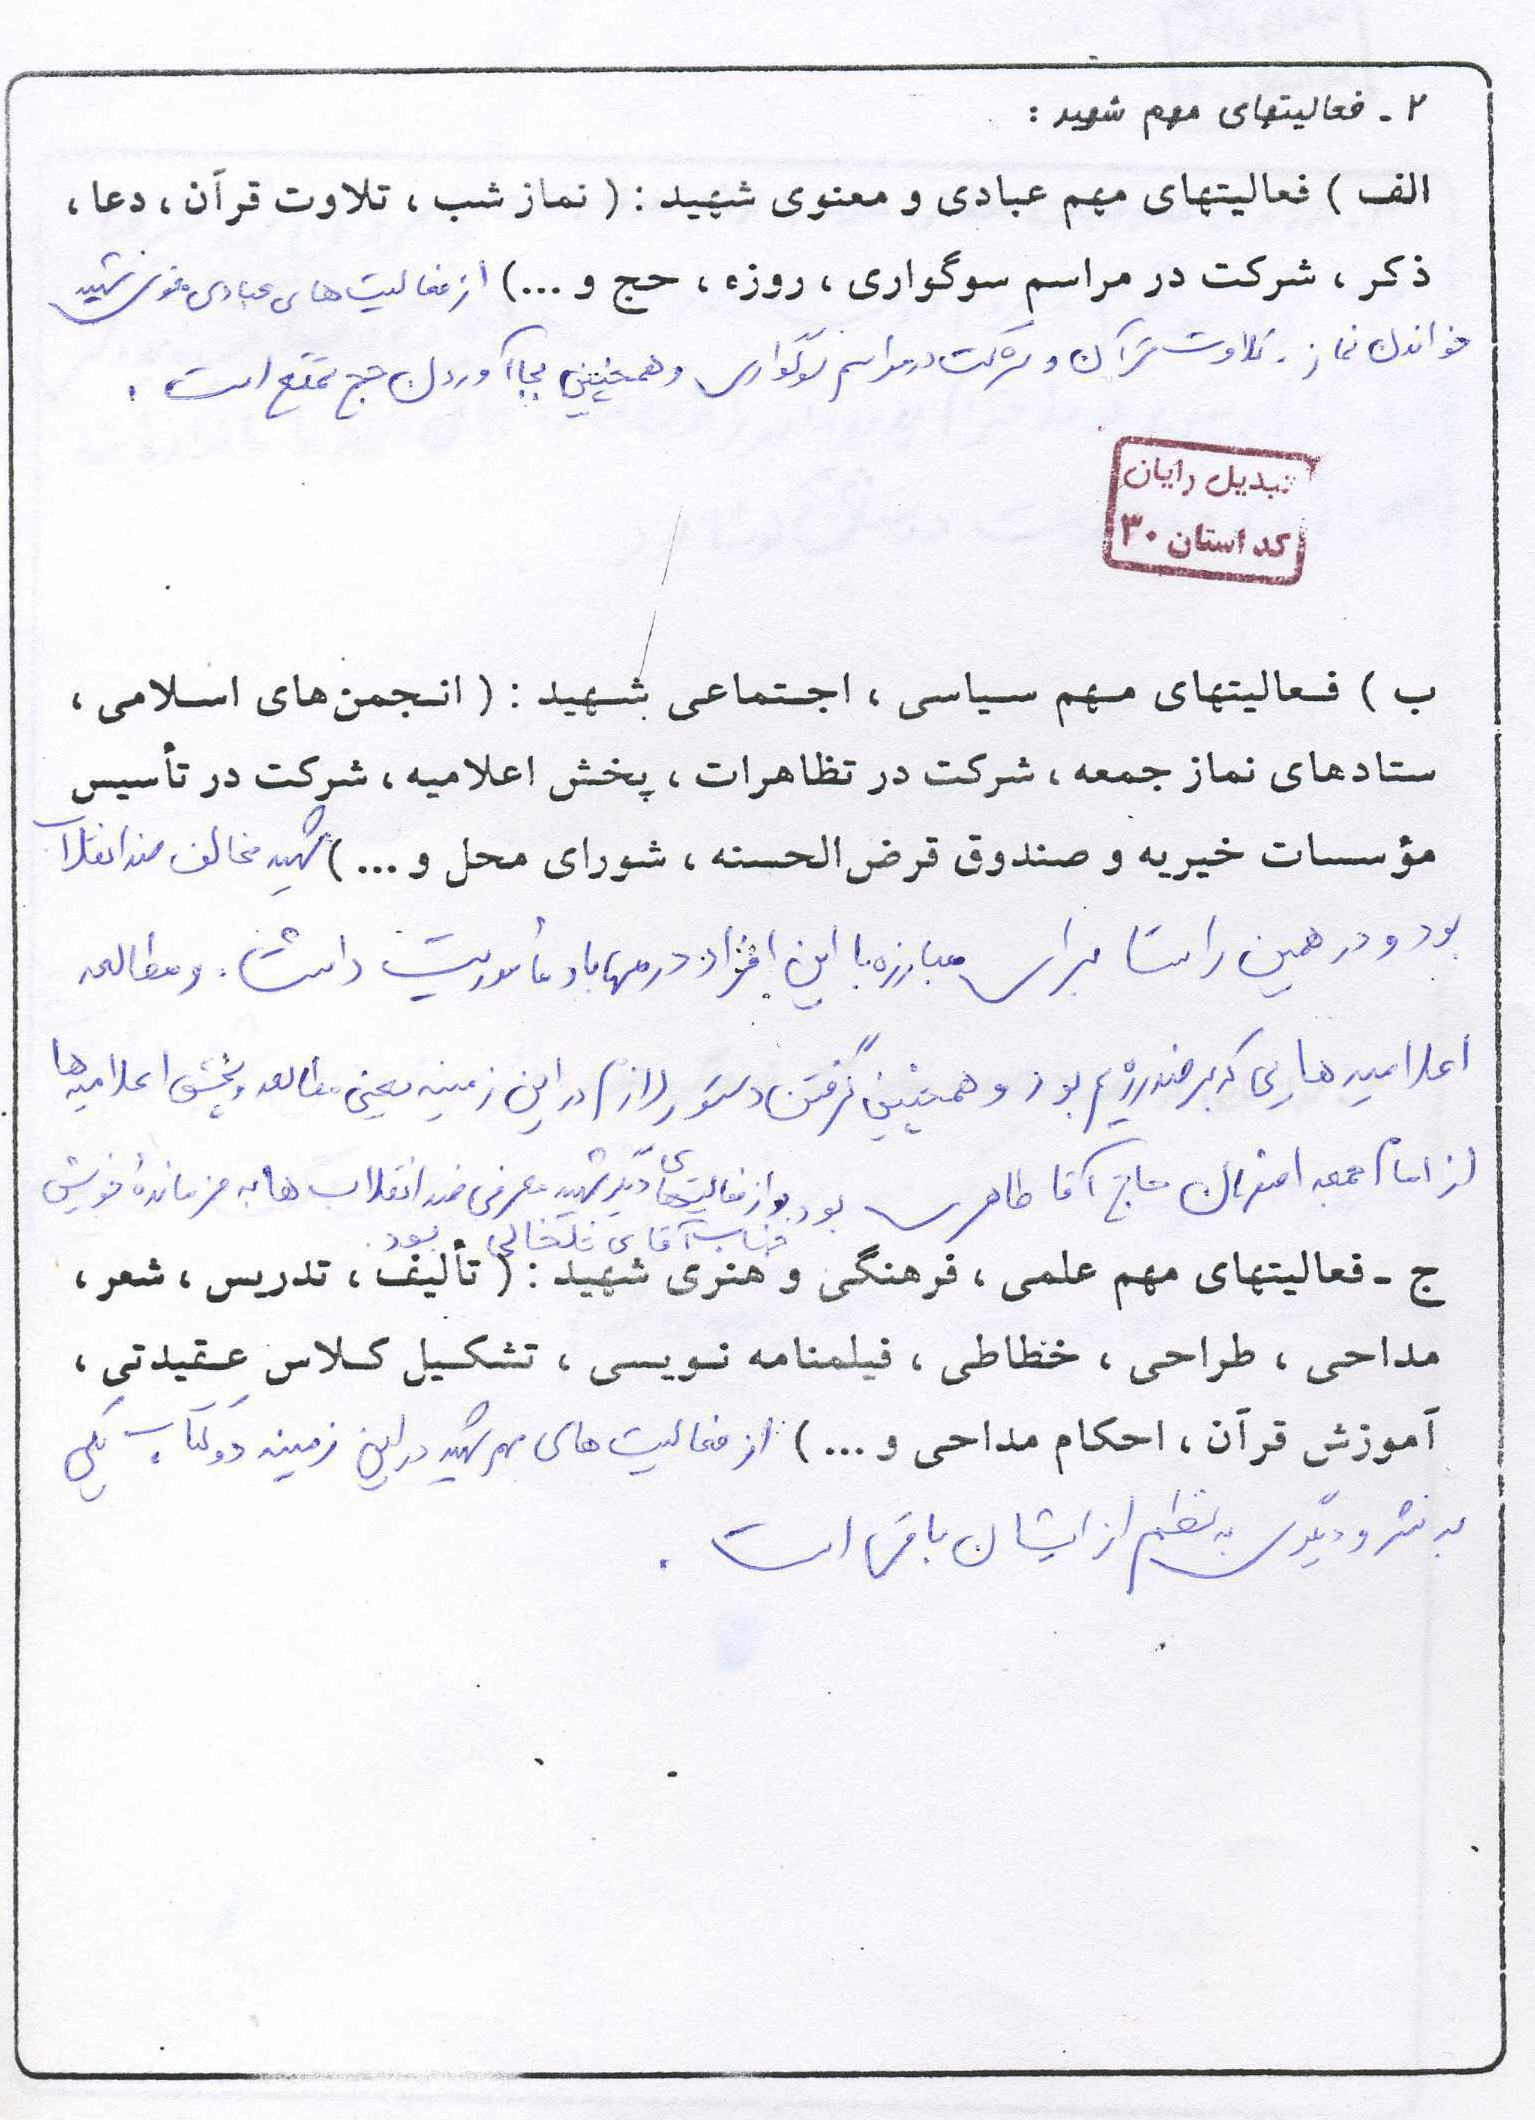 ۲ ـ فعالیتهای مهم شهید :
الف ) فعالیتهای مهم عبادی و معنوی شهید : ( نماز شب ، تلاوت قرآن ، دعا ،
ذکر ، شرکت در مراسم سوگواری ، روزه ، حج و ...) از فعالیت های عبادی معنوی شهید
خواندن نماز . تلاوت قرآن و شرکت در مراسم سوگواری و همچنین بجا آوردن حج تمتع است .
تبدیل رایان
کد استان ۳۰
ب ) فعالیتهای مهم سیاسی ، اجتماعی شهید : ( انجمن‌های اسلامی ،
ستادهای نماز جمعه ، شرکت در تظاهرات ، پخش اعلامیه ، شرکت در تأسیس
مؤسسات خیریه و صندوق قرض‌الحسنه ، شورای محل و ...) شهید مخالف ضد انقلاب
بود و در همین راستا برای مبارزه با این افراد در مهاباد مأموریت داشت . و مطالعه
اعلامیه هایی که بر ضد رژیم بود و همچنین گرفتن دستور لازم در این زمینه یعنی مطالعه و پخش اعلامیه ها
از امام جمعه اصفهان حاج آقا طاهری بود و از فعالیتهای دیگر شهید معرفی ضد انقلاب ها به فرمانده خویش
جناب آقای خلخالی بود .
ج ـ فعالیتهای مهم علمی ، فرهنگی و هنری شهید : ( تألیف ، تدریس ، شعر ،
مداحی ، طراحی ، خطاطی ، فیلمنامه نویسی ، تشکیل کلاس عقیدتی ،
آموزش قرآن ، احکام مداحی و ... ) از فعالیت های مهم شهید در این زمینه دو کتاب یکی
به نثر و دیگری به نظم از ایشان باقی است .